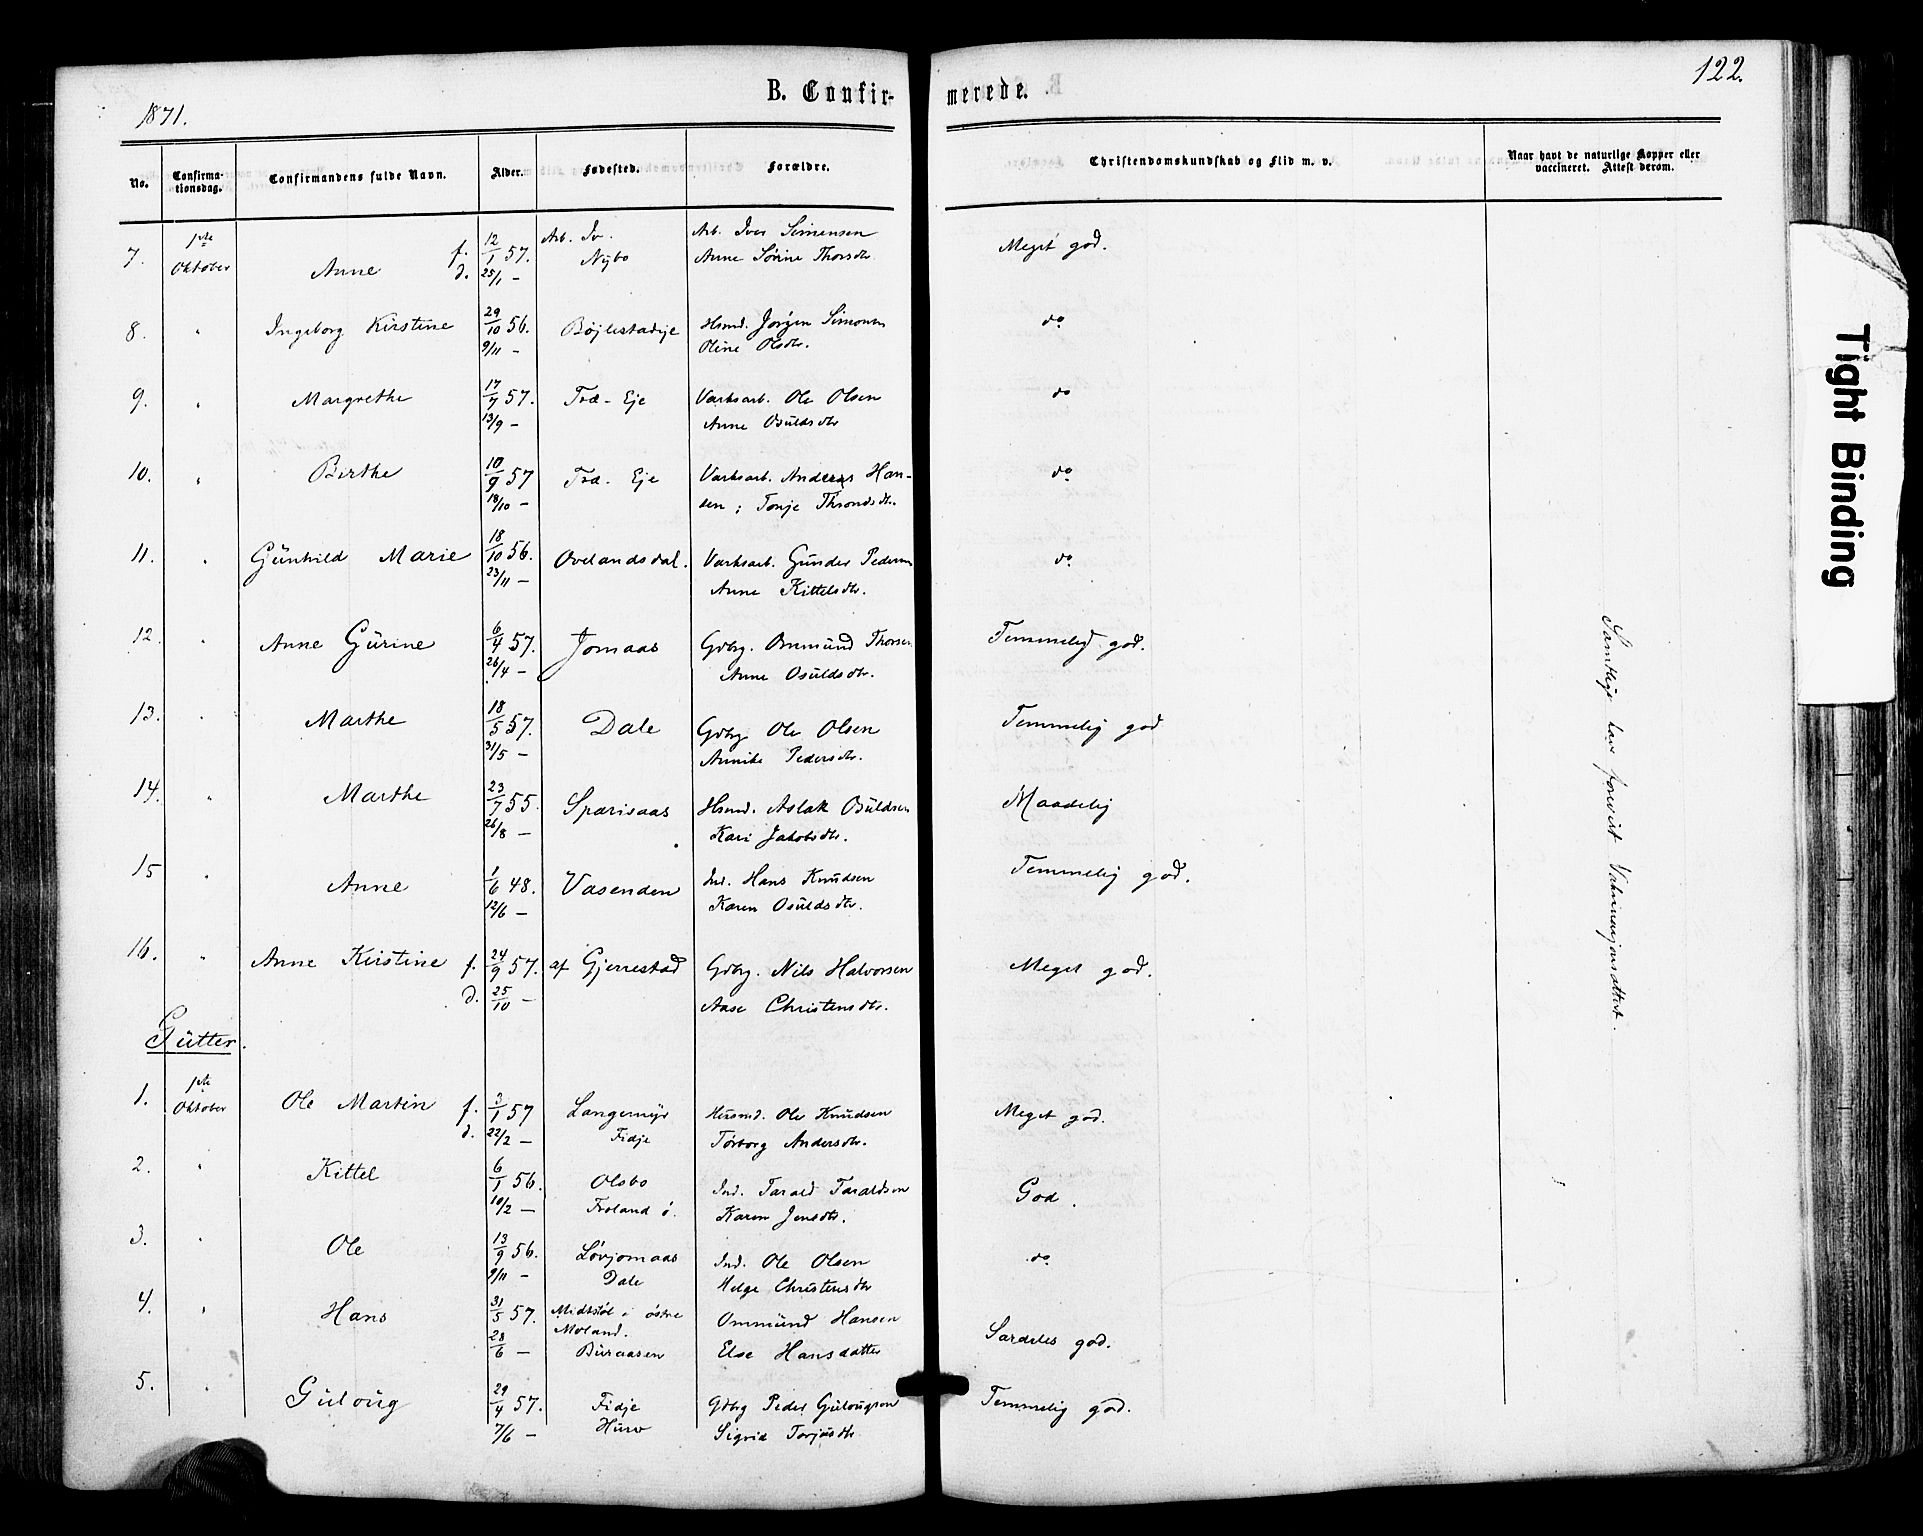 122.
B. Confirmerede.
1871.
No. Confirmationsdag. Confirmandens fulde Navn. Alder. Fødested. Forældre. Christendomskundskab og Flid m. v. Naar havt de naturlige Kopper eller vaccineret. Attest derom.
7. 1ste Oktober Anne f. 12/1 57. d. 25/1 – Arb. Iv. Nybo Arb. Iver Simensen Anne Sørine Thorsdtr. Meget god.
8. " Ingeborg Kirstine 29/10 56. 9/11 – Bøjlestadeje Hsmd. Jørgen Simonsen Oline Olsdtr. do
9. " Margrethe 17/7 57. 13/9 – Træ-Eje Værksarb. Ole Olsen Anne Osuldsdtr do
10. " Berthe 10/9 57 18/10 – Træ-Eje Værksarb. Anders Hansen; Tonje Throndsdtr. do
11. " Gunhild Marie 18/10 56. 23/11 – Ovelandsdal. Værksarb. Gunder Pedersen Anne Kittelsdtr. do
12. " Anne Gurine 6/4 57. 26/4 – Jomaas Gdbg. Ommund Thorsen Anne Osuldsdtr. Temmelig god.
13. " Marthe 18/5 57. 31/5 – Dale Gdbg Ole Olsen Annike Pedersdtr. Temmelig god
14. " Marthe 23/7 55. 26/8 – Sparisaas Hsmd. Aslak Osuldsen Kari Jakobsdtr. Maadelig
15 " Anne 1/6 48. 12/6 – Vasenden Ind. Hans Knudsen Karen Osuldsdtr. Temmelig god.
16. " Anne Kirstine f. 24/9 57. d. 25/10 – af Gjerrestad Gdbg. Nils Halvorsen Aase Christensdtr. Meget god.
Gutter.
1. 1ste Oktober Ole Martin f. 3/1 57 d. 22/2 – Langemyr Fidje Husmd. Ole Knudsen Torborg Andersdtr. Meget god.
2. " Kittel 6/1 56. 10/2 – Olsbo Froland ø. Ind. Tarald Taraldsen Karen Jensdtr. God.
3. " Ole 13/9 56. 9/11 – Løvjomaas Dale Ind. Ole Olsen Helge Christensdtr do
4. " Hans 31/5 57. 28/6 – Midtstøl i østre Moland. Buraasen Ommund Hansen Else Hansdatter Særdeles god.
5. " Guloug 29/4 57. 7/6 – Fidje Gdbg Peder Gulougsen Sigrid Torjusdtr Temmelig god.
Samtlige have forevist Vakcinasjonsattest.
Tight Binding